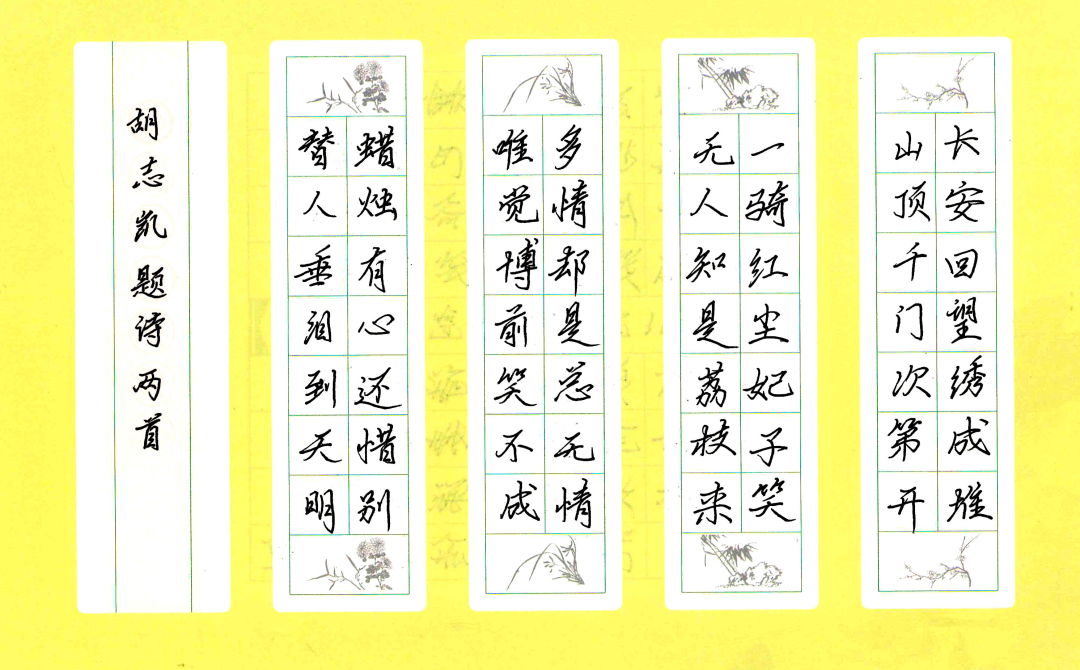 长安回望绣成堆
山顶千门次第开
一骑红尘妃子笑
无人知是荔枝来
多情却是总无情
唯觉樽前笑不成
蜡烛有心还惜别
替人垂泪到天明
胡志凯题诗两首